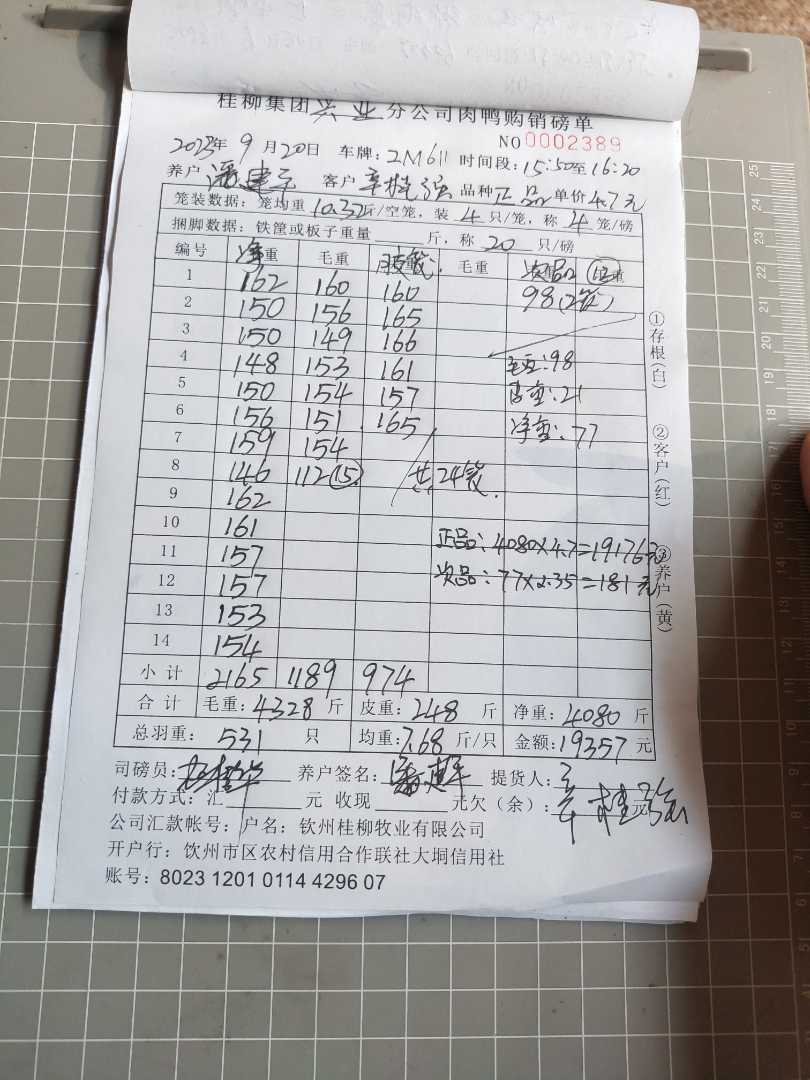 桂柳集团兴业分公司肉鸭购销磅单
NO 0002389
2023年9月20日 车牌：2M611 时间段：15:50至16:20
养户 客户 品种正品 单价4.7元
笼装数据：笼均重10.32斤/空笼，装4只/笼，称4笼/磅
捆脚数据：铁筐或板子重量 斤，称20只/磅
编号 净重 毛重 胶筐 毛重 次品 重
1 162 160 160 98(2筐)
2 150 156 165
3 150 149 166
4 148 153 161 毛重:98
5 150 154 157 皮重:21
6 156 151 165 净重:77
7 159 154
8 146 112(15) 共24筐.
9 162
10 161
11 157 正品：4080×4.7=19176元
12 157 次品：77×2.35=181元
13 153
14 154
小计 2165 1189 974
合计 毛重:4328斤 皮重:248斤 净重:4080斤
总羽重：531只 均重:7.68斤/只 金额:19357元
司磅员: 养户签名: 提货人:
付款方式：汇 元 收现 元欠（余）: 元
公司汇款帐号：户名：钦州桂柳牧业有限公司
开户行：饮州市区农村信用合作联社大垌信用社
账号：8023 1201 0114 4296 07
①存根(白)
②客户(红)
③养户(黄)